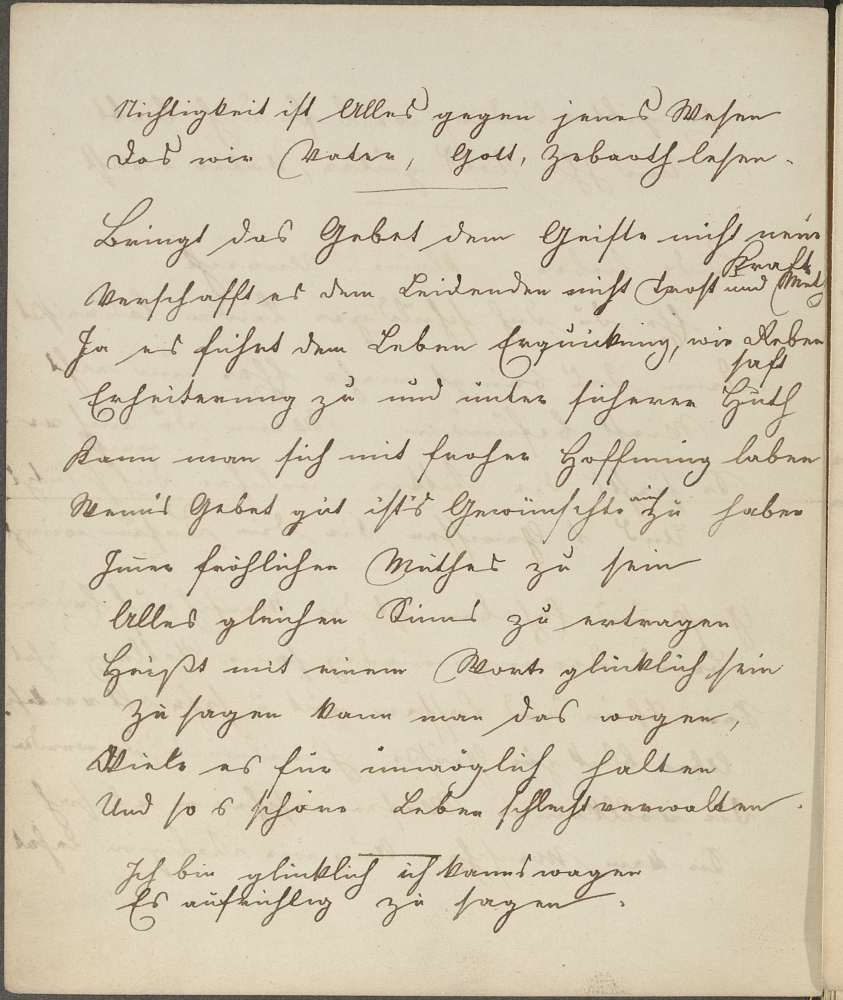 Nichtigkeit ist Alles gegen jenes Wesen
Das wir Vater, Gott, Zebaoth lesen.
Bringt das Gebet dem Geiste nicht neue
Kraft
Verschafft es dem Leidenden nicht Trost und Muth
Ja es führt dem Leben Erquickung, wie Reben
saft
Erheiterung zu und unter sicherer Huth
Kann man sich mit froher Hoffnung laben
Wenn's Gebet gut ist's Gewünschte auch zu haben
Immer fröhlichen Muthes zu sein
Alles gleichen Sinns zu ertragen
Heißt mit einem Worte glücklich sein
Zu sagen kann man das wagen,
Viele es für unmöglich halten
Und so s schöne Leben schlecht verwalten.
Ich bin glücklich ich kanns wagen
Es aufrichtig zu sagen.